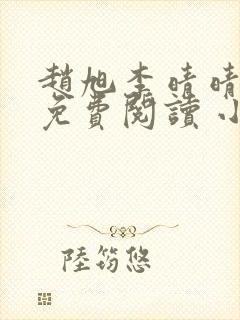 趙旭李晴晴
免費閱讀小
陸筠悠